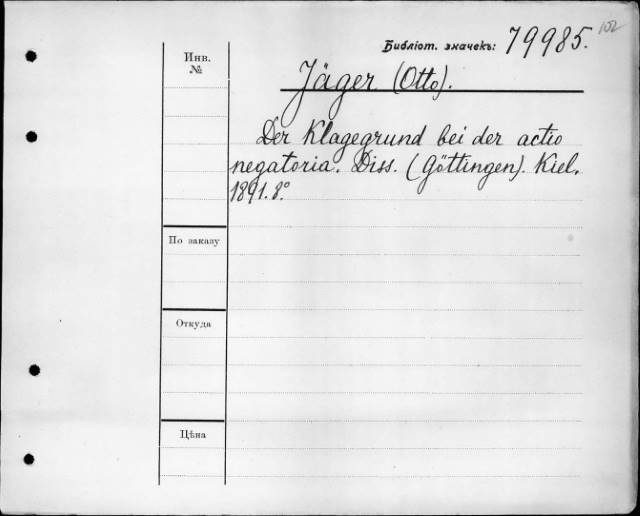 102
Библіот. значекъ: 79985.
Инв.
№
Jäger (Otto).
Der Klagegrund bei der actio
negatoria. Diss. (Göttingen). Kiel.
1891. 8°
По заказу
Откуда
Цѣна